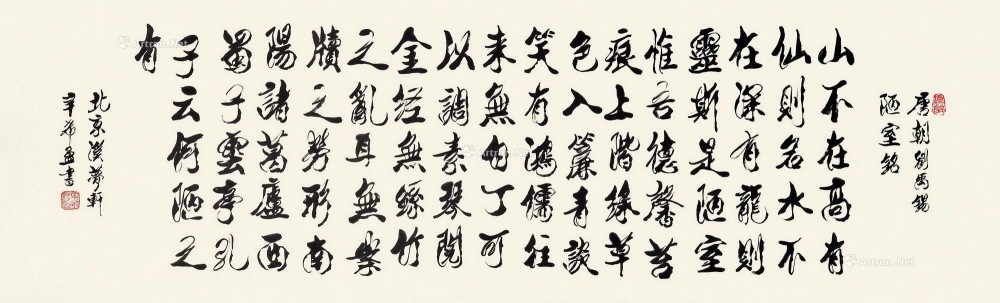 唐朝劉禹錫
陋室銘
山不在高有
仙則名水不
在深有龍則
靈斯是陋室
惟吾德馨苔
痕上階緑草
色入簾青談
笑有鴻儒往
来無白丁可
以調素琴閲
金经無絲竹
之亂耳無案
牘之勞形南
陽諸葛廬西
蜀子雲亭孔
子云何陋之
有
北京漢夢軒
辛希孟書
Artron.Net
Artron.Net